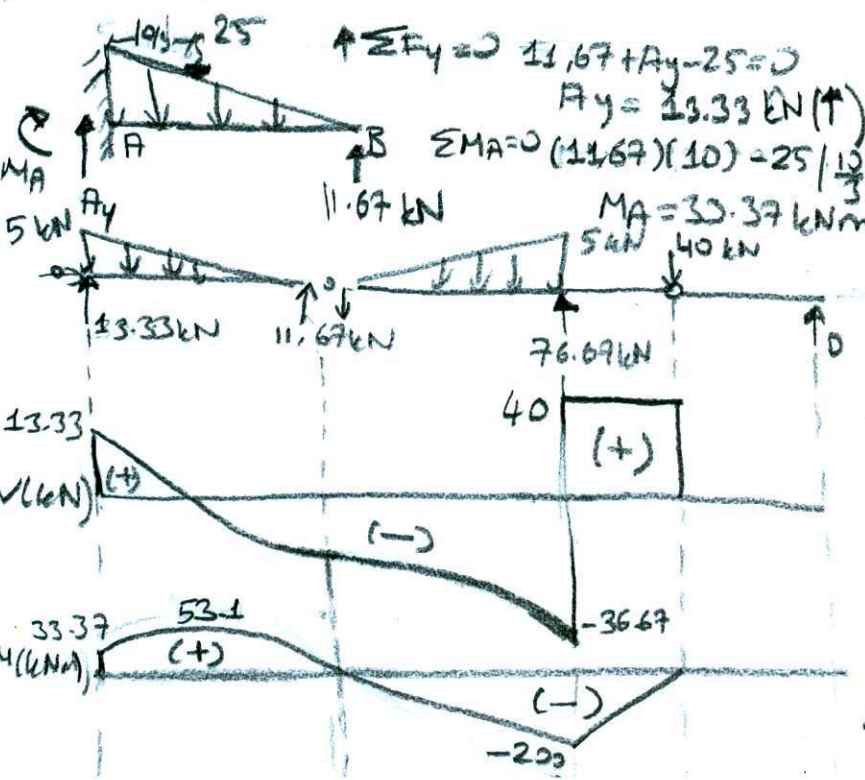 25
↑ΣFy=0 11,67+Ay-25=0
Ay= 13.33 kN(↑)
A
B
ΣMA=0 (11,67)(10) - 25(10/3
MA
Ay
11.67 kN
MA=33.37 kNm
5 kN
5 kN
40 kN
13.33kN
11.67kN
76.69kN
D
40
13.33
(+)
(+)
V(kN)
(—)
-36.67
33.37
53.1
M(kNm)
(+)
(—)
-200